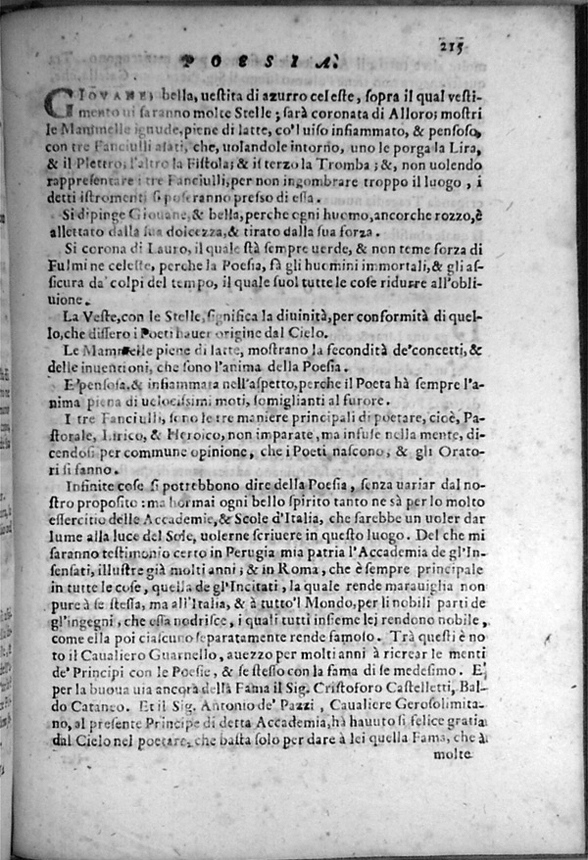 215
POESIA.
GIOVANE, bella, uestita di azurro celeste, sopra il qual vesti-
mento ui saranno molte Stelle; sarà coronata di Alloro; mostri
le Mammelle ignude, piene di latte, co'l uiso infiammato, & pensoso,
con tre Fanciulli alati, che, uolandole intorno, uno le porga la Lira,
& il Plettro, l'altro la Fistola; & il terzo la Tromba; &, non uolendo
rappresentare i tre Fanciulli, per non ingombrare troppo il luogo, i
detti istromenti si poseranno presso di essa.
Si dipinge Giouane, & bella, perche ogni huomo, ancorche rozzo, è
allettato dalla sua dolcezza, & tirato dalla sua forza.
Si corona di Lauro, il quale stà sempre uerde, & non teme forza di
Fulmine celeste, perche la Poesia, fà gli huomini immortali, & gli as-
sicura da' colpi del tempo, il quale suol tutte le cose ridurre all'obli-
uione.
La Veste, con le Stelle, significa la diuinità, per conformità di quel-
lo, che dissero i Poeti hauer origine dal Cielo.
Le Mammelle piene di latte, mostrano la fecondità de' concetti, &
delle inuentioni, che sono l'anima della Poesia.
E' pensosa, & infiammata nell'aspetto, perche il Poeta hà sempre l'a-
nima piena di uelocissimi moti, somiglianti al furore.
I tre Fanciulli, sono le tre maniere principali di poetare, cioè, Pa-
storale, Lirico, & Heroico, non imparate, ma infuse nella mente, di-
cendosi per commune opinione, che i Poeti nascono, & gli Orato-
ri si fanno.
Infinite cose si potrebbono dire della Poesia, senza uariar dal no-
stro proposito: ma hormai ogni bello spirito tanto ne sà per lo molto
essercitio delle Accademie, & Scole d'Italia, che sarebbe un uoler dar
lume alla luce del Sole, uolerne scriuere in questo luogo. Del che mi
saranno testimonio certo in Perugia mia patria l'Accademia de gl'In-
sensati, illustre già molti anni; & in Roma, che è sempre principale
in tutte le cose, quella de gl'Incitati, la quale rende marauiglia non
pure à se stessa, ma all'Italia, & à tutto'l Mondo, per li nobili parti de
gl'ingegni, che essa nodrisce, i quali tutti insieme lei rendono nobile,
come ella poi ciascuno separatamente rende famoso. Trà questi è no
to il Caualiero Guarnello, auezzo per molti anni à ricrear le menti
de' Principi con le Poesie, & se stesso con la fama di se medesimo. E'
per la buoua uia ancora della Fama il Sig. Cristoforo Castelletti, Bal-
do Cataneo. Et il Sig. Antonio de' Pazzi, Caualiere Gerosolimita-
no, al presente Principe di detta Accademia, hà hauuto si felice gratia
dal Cielo nel poetare, che basta solo per dare à lei quella Fama, che à
molte